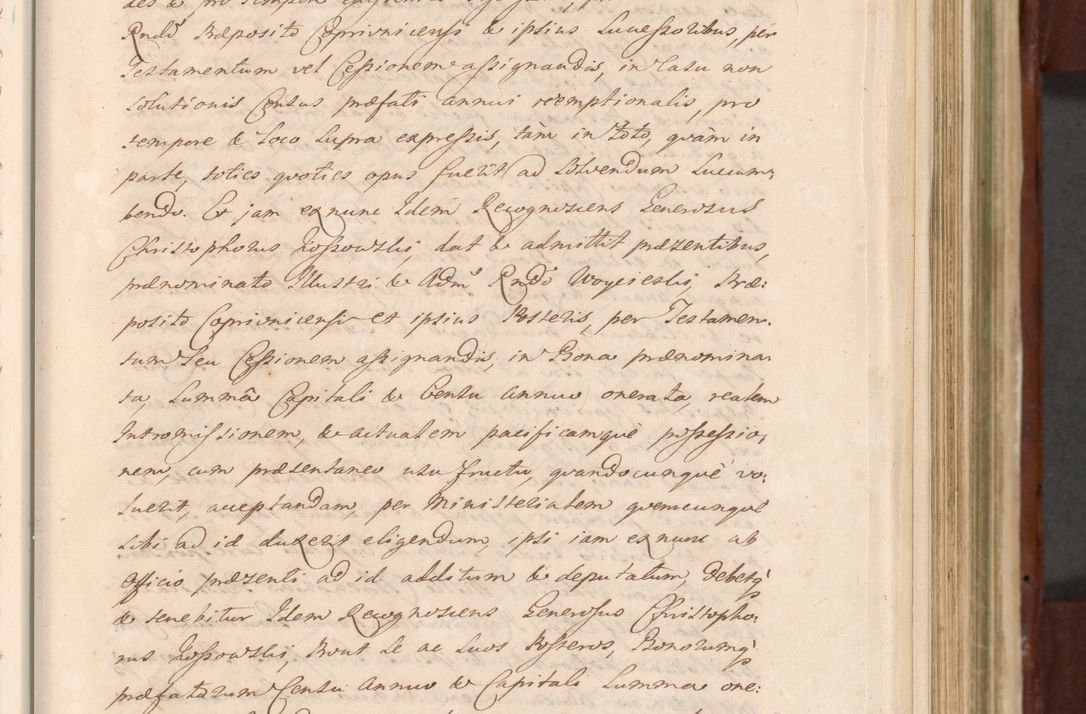 Rndo Præposito Coprivnicensi & ipsius Successoribus, per
Testamentum vel Cessionem assignandis, in Casu non
solutionis Census præfati annui reemptionalis, pro
tempore & loco supra expressis, tàm in toto, quàm in
parte, toties quoties opus fuerit, ad solvendum succum,
bendo. Et jam ex nunc Idem Recognoscens Generosus
Christophorus Rossowski, dat & admittit præsentibus,
prænominato Illustri & Admo Rndo Woycieski, Præ:
posito Coprivnicensi et ipsius Posteris, per Testamen:
tum seu Cessionem assignandis, in Bona prænomina:
ta, Summâ Capitali & Censu Annuo onerata, realem
Intromissionem, & actualem pacificamque possessio,
nem, cum præsentaneo usu fructu, quandocunque vo:
luerit, acceptandam, per Ministerialem quemcunque
sibi ad id duxerit eligendum, ipsi iam ex nunc ab
Officio præsenti ad id additum & deputatum, Debetq
& tenebitur Idem Recognoscens Generosus Christopho:
rus Rossowski, Prout se ac suos Posteros, Bonorumq
præfatorum Censu Annuo & Capitali Summa one: